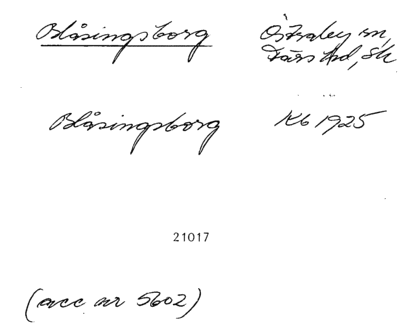 Blåsingsborg Östraby sn,
Färs hd, Sk
Blåsingsborg Kb 1925
21017
(acc nr 5602)